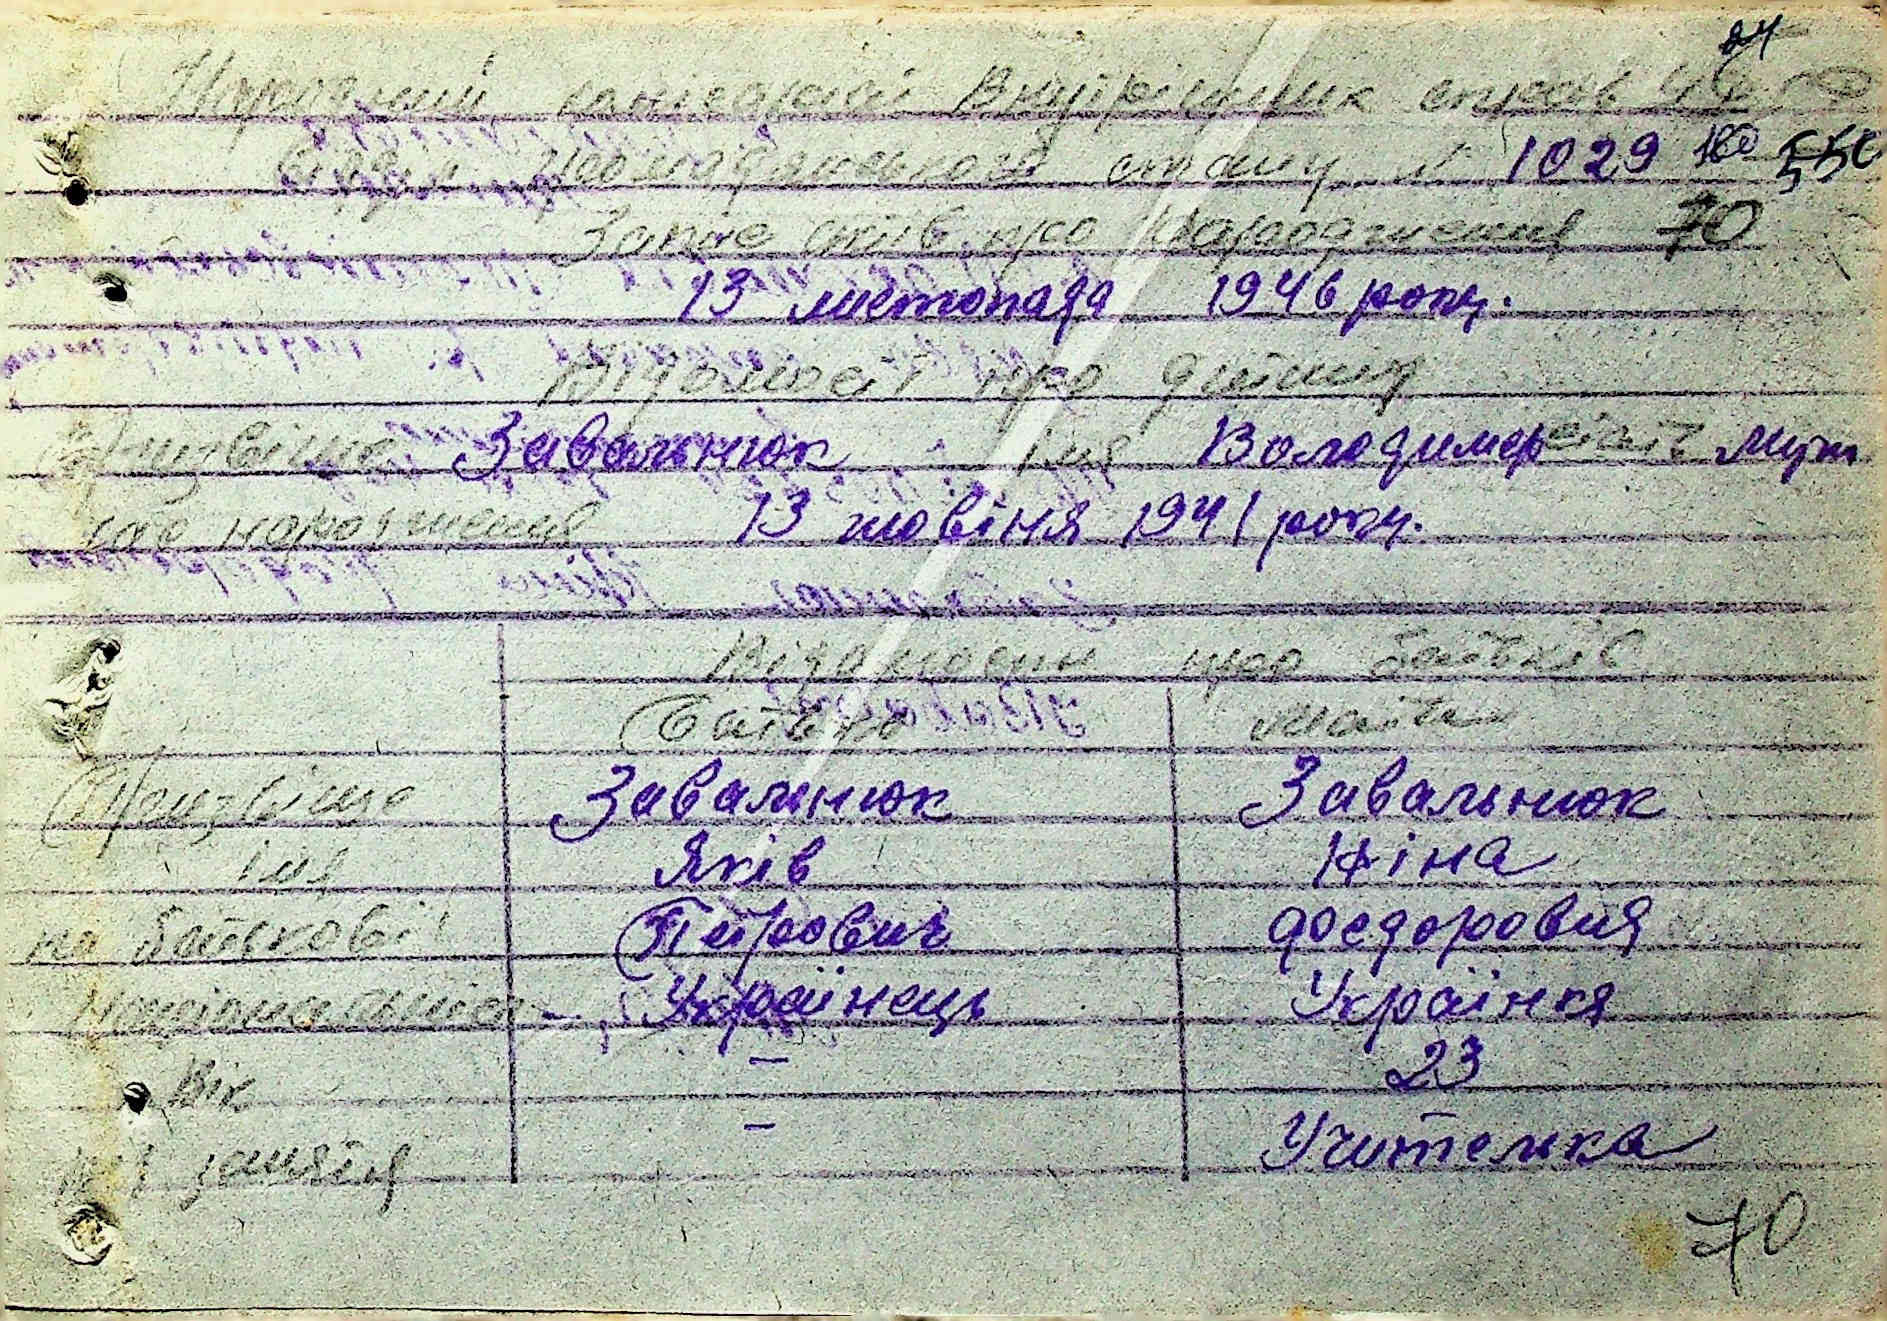 24
Народний комісаріат Внутрішних справ
Відділ громадянського стану № 1029 550
Запис актів про народження 70
13 листопада 1946 року.
Відомості про дитину
Призвіще Завальнюк імя Володимер стать муж
час народження 13 жовтня 1941 року.
Відомости про батьків
Батько Мати
Призвіще Завалнюк Завальнюк
імя Яків Ніна
по батькові Петрович Фоедоровна
Національність Українець Українка
Вік – 23
заняття – Учителька
70